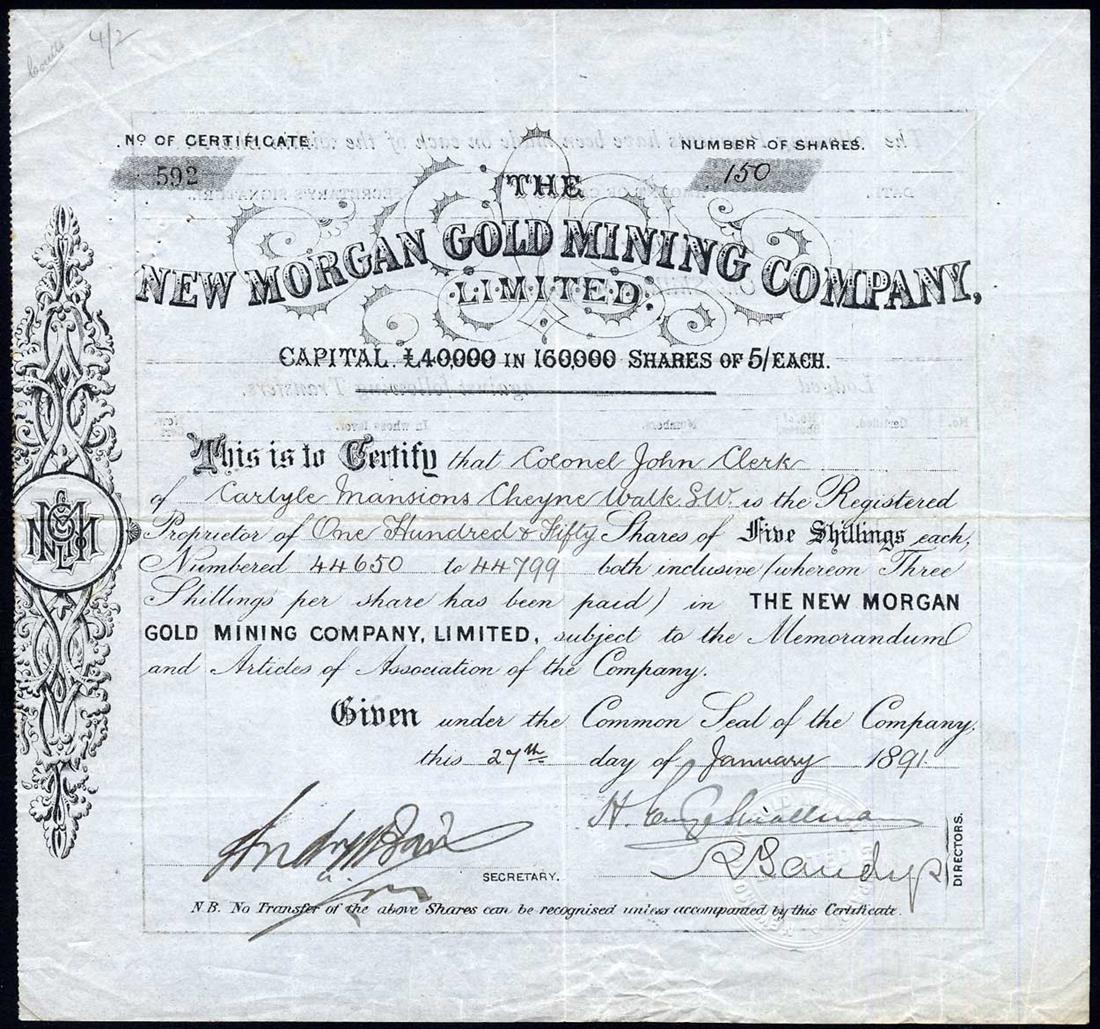 4/2
No OF CERTIFICATE
592
NUMBER OF SHARES.
150
THE
NEW MORGAN GOLD MINING COMPANY,
LIMITED.
CAPITAL. £40,000 IN 160,000 SHARES OF 5/ EACH.
This is to Certify that Colonel John Clerk
of Carlyle Mansions Cheyne Walk S.W. is the Registered
Proprietor of One Hundred & Fifty Shares of Five Shillings each,
Numbered 44650 to 44799 both inclusive (whereon Three
Shillings per share has been paid) in THE NEW MORGAN
GOLD MINING COMPANY, LIMITED, subject to the Memorandum
and Articles of Association of the Company.
Given under the Common Seal of the Company,
this 27th day of January 1891.
SECRETARY.
R Sandys
DIRECTORS.
N.B. No Transfer of the above Shares can be recognised unless accompanied by this Certificate.